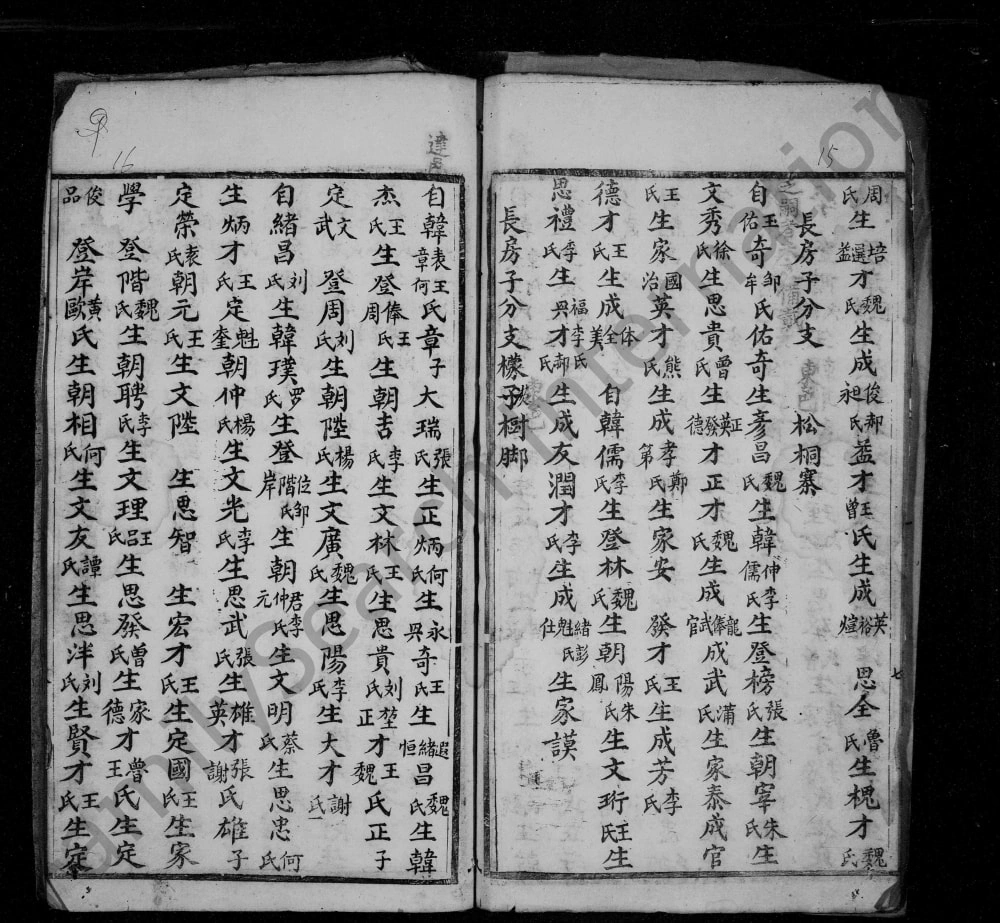 15
周氏生培選益才魏氏生成俊昶郝氏益才王曾氏生成英裕煊　恩全魯氏生槐才魏氏
長房子分支　松桐寨
自王佑奇鄒牟氏佑奇生彥昌魏氏生韓伸儒李氏生登榜張氏生朝宰朱氏生
文秀徐氏生思貴曾氏生正英發德才正才魏氏生成龍俸武官成武滿氏生家泰成官
王氏生家國治英才熊氏生成孝第鄭氏生家安　發才王氏生成芳李氏
德才王氏生成体全美　自韓儒李氏生登林魏氏生朝陽鳳朱氏生文珩王氏生
思禮李氏生福興才李氏郝氏生成友潤才李氏生成緒魁仕彭氏生家謨
長房子分支檬子樹脚
16
自韓表章王何氏章子大瑞張氏生正炳何氏生永興奇王氏生遐緒恒昌魏氏生韓
杰王氏生登俸周王氏生朝吉李氏生文林王氏生思貴刘氏正堃才王魏氏正子
定文武　登周刘氏生朝陞楊氏生文廣魏氏生思陽李氏生大才謝氏
自緒昌刘氏生韓璞罗氏生登位階岸鄒氏生朝君仲元李氏生文明蔡氏生思忠何氏
生炳才王氏定魁奎朝仲楊氏生文光李氏生思武張氏生雄英才張謝氏雄子
定榮袁氏朝元王氏生文陞　生思智　生宏才王氏生定國王氏生家
學　登階魏氏生朝聘李氏生文理王呂氏生思發曾氏生家德才魯王氏生定
俊品　登岸黃歐氏生朝相何氏生文友譚氏生思泮刘氏生賢才王氏生定
七
八